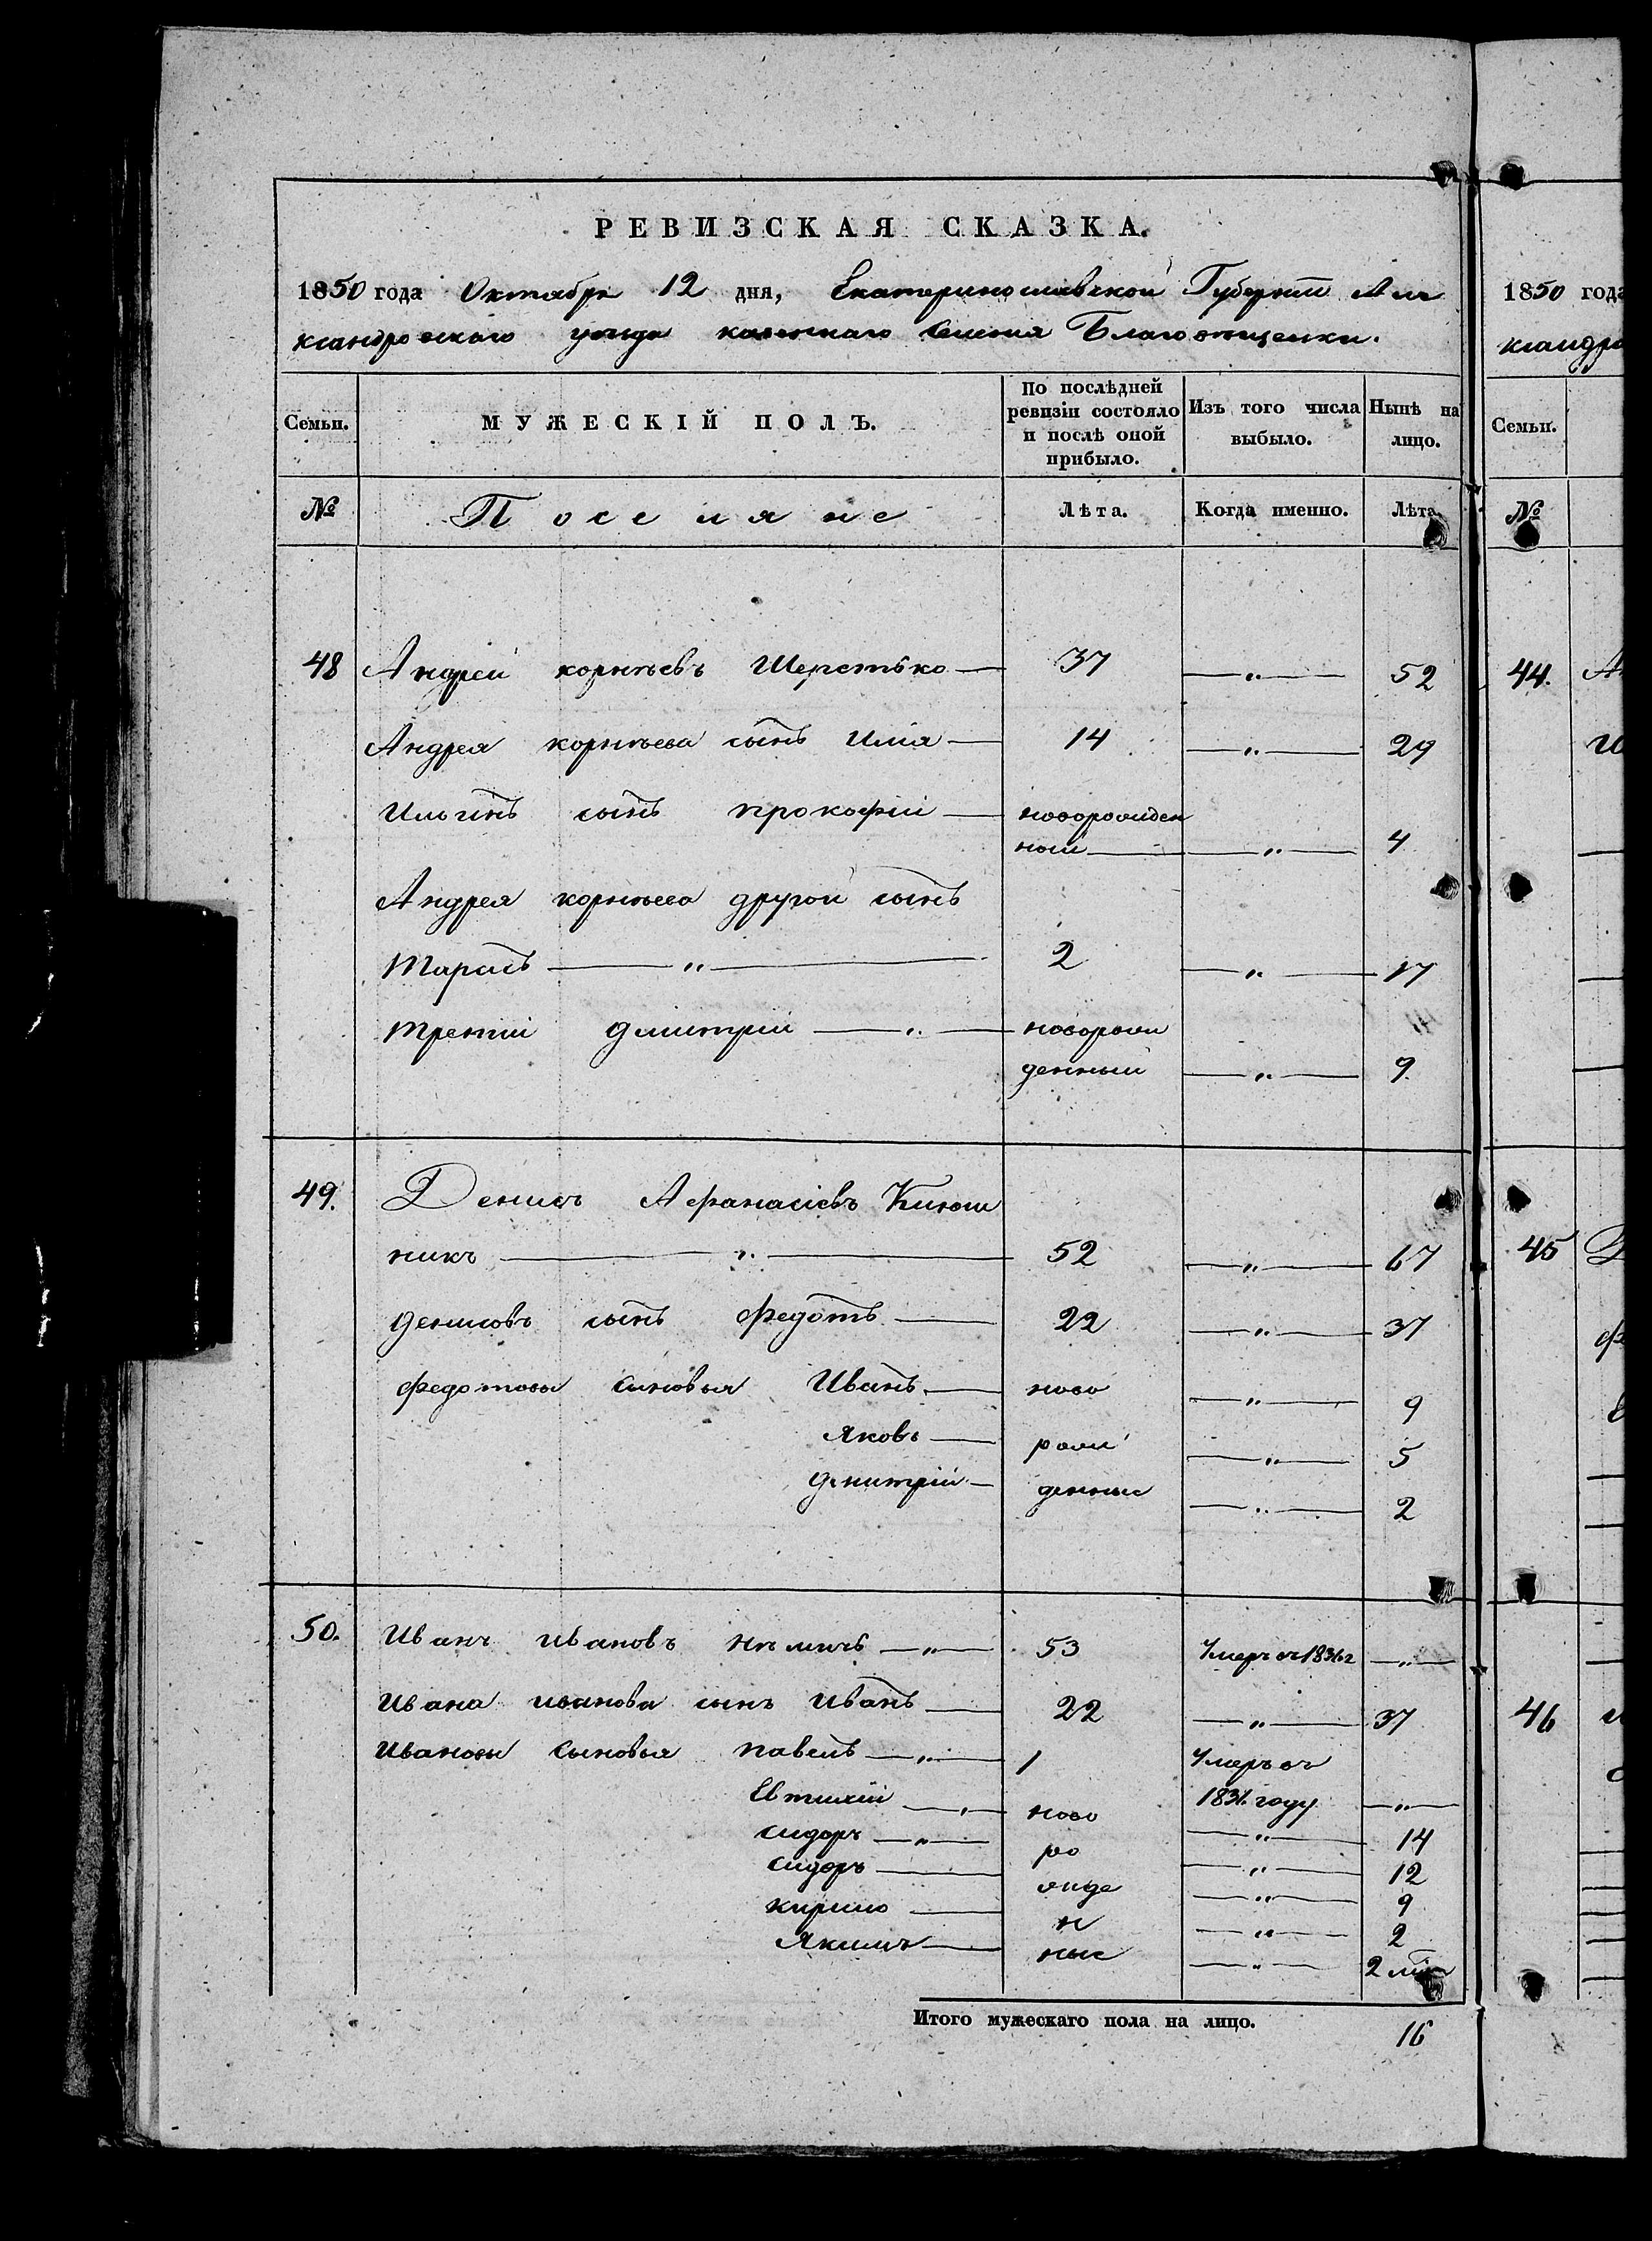 РЕВИЗСКАЯ СКАЗКА.
1850 года Октября 12 дня, Екатеринославской Губернии Але
ксандровского уезда казеннаго Селения Благовещенки.
Семьи. МУЖЕСКІЙ ПОЛЪ. По послѣдней ревизіи состояло и послѣ оной прибыло. Изъ того числа выбыло. Нынѣ на лицо.
№ Поселяне Лѣта. Когда именно. Лѣта
48 Андрей корнѣевъ Шерстько — 37 — „ — 52
Андрея корнѣева сынъ Илія — 14 — „ — 29
Ильинъ сынъ прокофій — новорожден
ной — „ — 4
Андрея корнѣева другой сынъ
Тарасъ — „ — 2 — „ — 17
Третій дмитрій — „ — новорож
денный — „ — 9
49. Денисъ Афанасіевъ Ключ
никъ — „ — 52 — „ — 67
денисовъ сынъ Федотъ — 22 — „ — 37
Федотовы сыновья Иванъ — ново — „ — 9
Яковъ — рож — „ — 5
дмитрій — денные — „ — 2
50. Иванъ Ивановъ — „ — 53 Умеръ въ — „ —
Ивана иванова сынъ Иванъ — 22 — „ — 37
Ивановы Сыновья павелъ — „ — 1 Умеръ въ
году — „ —
Евтихій — „ — ново — „ — 14
Сидоръ — „ — ро — „ — 12
Сидоръ — жде — „ — 9
кирило — н — „ — 2
Якимъ — ные — „ — 2
Итого мужескаго пола на лицо. 16
1850 года
ксандро
Семьи.
№
44.
45
46